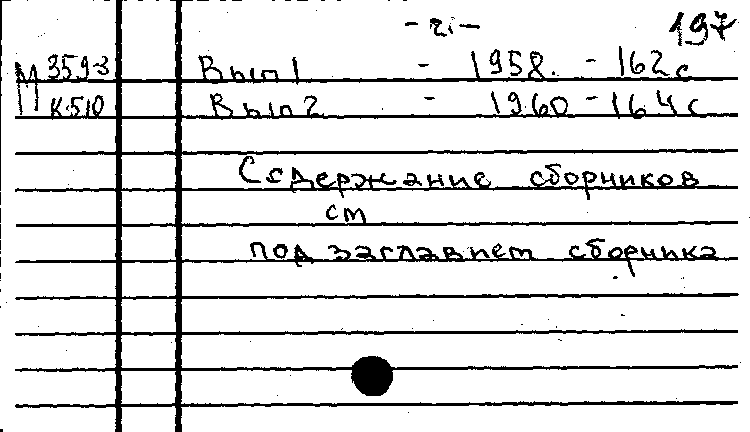 -2- 197
М 3593 Вып 1 - 1958. - 162 с
К510 Вып 2 - 1960 - 164 с
Содержание сборников
см
под заглавием сборника